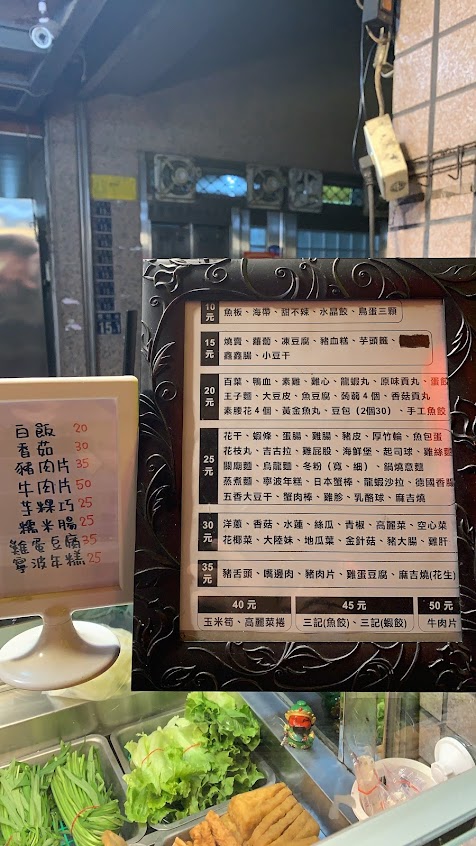 白飯 20
香菇 30
豬肉片 35
牛肉片 50
芋粿巧 25
糯米腸 25
雞蛋豆腐 35
寧波年糕 25
10元
魚板、海帶、甜不辣、水晶餃、鳥蛋三顆
15元
燒賣、蘿蔔、凍豆腐、豬血糕、芋頭籤
鑫鑫腸、小豆干
20元
百菜、鴨血、素雞、雞心、龍蝦丸、原味貢丸、蛋餃
王子麵、大豆皮、魚豆腐、蒟蒻4個、香菇貢丸
素腰花4個、黃金魚丸、豆包(2個30)、手工魚餃
25元
花干、蝦條、蛋腸、雞腸、豬皮、厚竹輪、魚包蛋
花枝丸、吉古拉、雞屁股、海鮮堡、起司球、雞絲麵
關廟麵、烏龍麵、冬粉(寬、細)、鍋燒意麵
蒸煮麵、寧波年糕、日本蟹棒、龍蝦沙拉、德國香腸
五香大豆干、蟹肉棒、雞胗、乳酪球、麻吉燒
30元
洋蔥、香菇、水蓮、絲瓜、青椒、高麗菜、空心菜
花椰菜、大陸妹、地瓜葉、金針菇、豬大腸、雞肝
35元
豬舌頭、嘴邊肉、豬肉片、雞蛋豆腐、麻吉燒(花生)
40元 45元 50元
玉米筍、高麗菜捲 三記(魚餃)、三記(蝦餃) 牛肉片